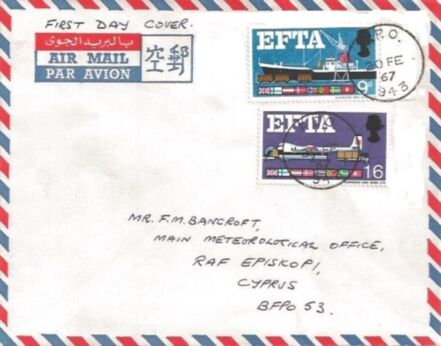 FIRST DAY COVER.
بالبريد الجوى
AIR MAIL
PAR AVION
空郵
EFTA
9D
P.O.
20 FE
67
943
EFTA
1/6
MR. F.M. BANCROFT,
MAIN METEOROLOTICAL OFFICE,
RAF EPISKOPI,
CYPRUS
BFPO 53.